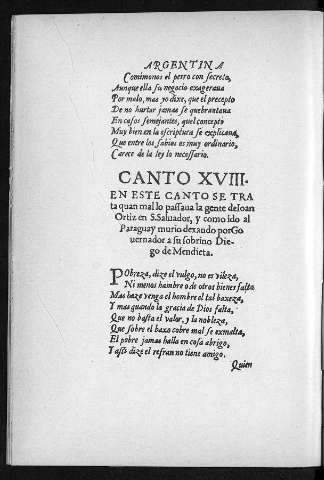 ARGENTINA
Comimonos el perro con secreto,
Aunque ella su negocio exageraua
Por malo, mas yo dixe, que el precepto
De no hurtar jamas se quebrantaua
En casos semejantes, quel concepto
Muy bien en la escriptura se explicaua,
Que entre los sabios es muy ordinario,
Carece de la ley lo necessario.
CANTO XVIII.
EN ESTE CANTO SE TRA
ta quan mal lo passaua la gente de Ioan
Ortiz en S. Saluador, y como ido al
Paraguay murio dexando por Go
uernador a su sobrino Die-
go de Mendieta.
PObreza, dize el vulgo, no es vileza,
Ni menos hambre o de otros bienes falta
Mas haze venga el hombre a tal baxeza,
Y mas quando la gracia de Dios falta,
Que no basta el valor, y la nobleza,
Que sobre el baxo cobre mal se esmalta,
El pobre jamas halla en cosa abrigo,
Y assi dize el refran no tiene amigo.
Quien